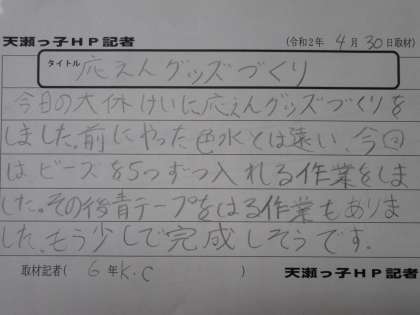 天瀬っ子HP記者 (令和2年 4月 30日取材)
タイトル 応えんグッズづくり
今日の大休けいに応えんグッズづくりを
しました。前にやった色水とは違い、今回
はビーズを5つずつ入れる作業をしま
した。その後青テープをはる作業もありま
した。もう少しで完成しそうです。
取材記者( 6年K.C ) 天瀬っ子HP記者